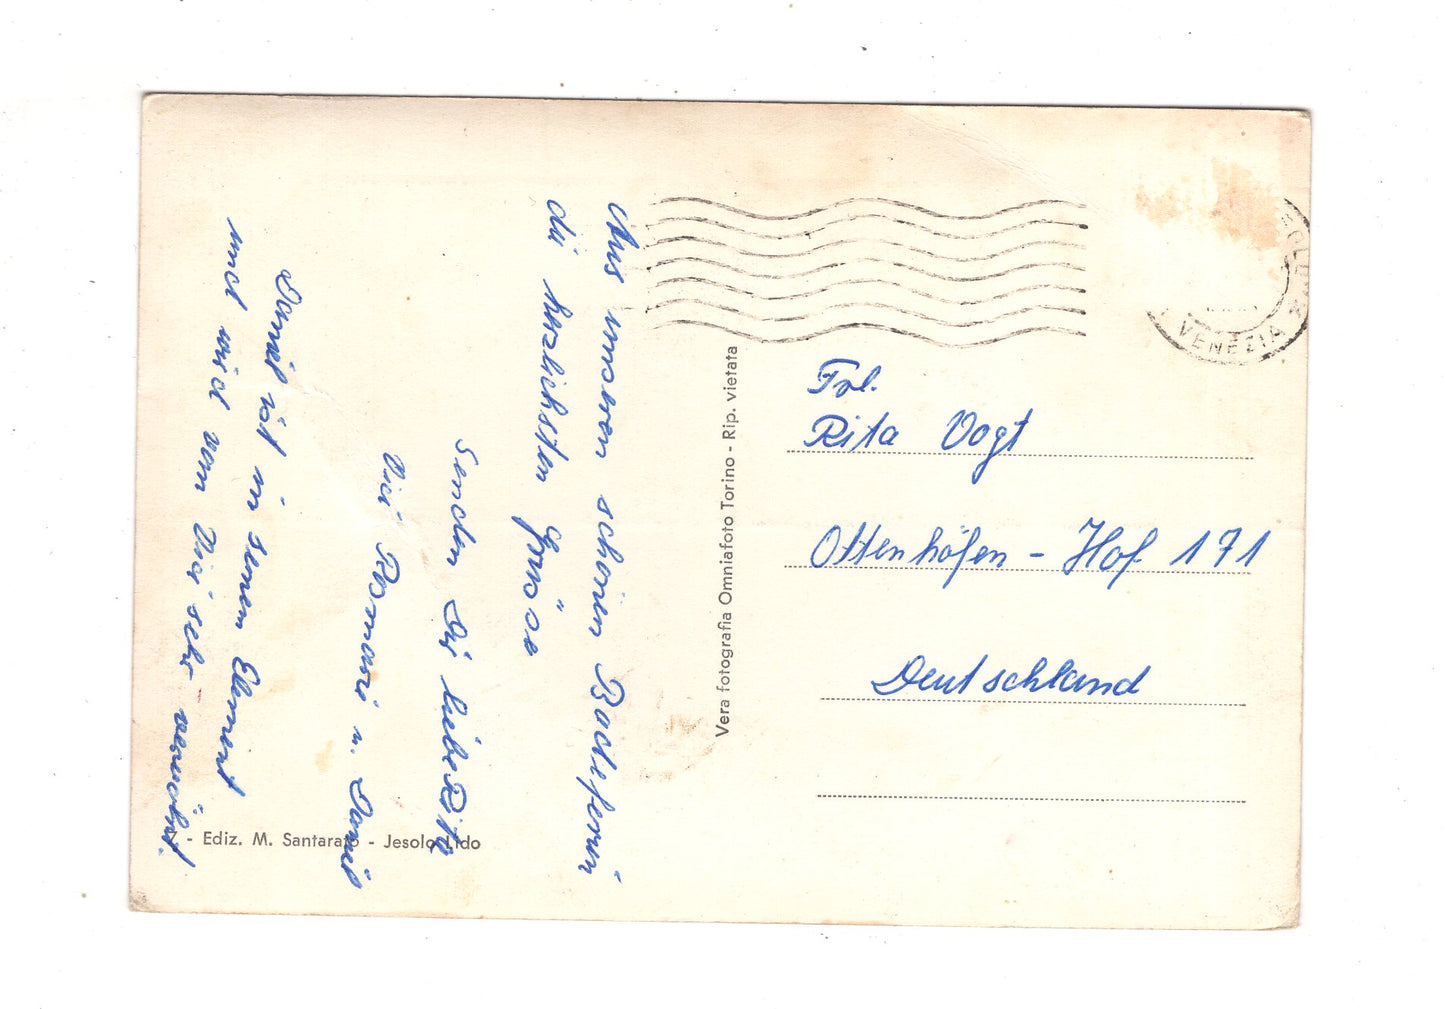 Aus unseren schönen Badeferien
die herzlichsten Grüsse
Senden Dir liebe Rita
Vici Rosmari u. Daniel
Daniel ist in seinem Element
und wird von Vici sehr verwöhnt.
Vera fotografia Omniafoto Torino - Rip. vietata
7 - Ediz. M. Santarato - Jesolo Lido
VENEZIA
Frl.
Rita Vogt
Ottenhöfen - Hof 171
Deutschland